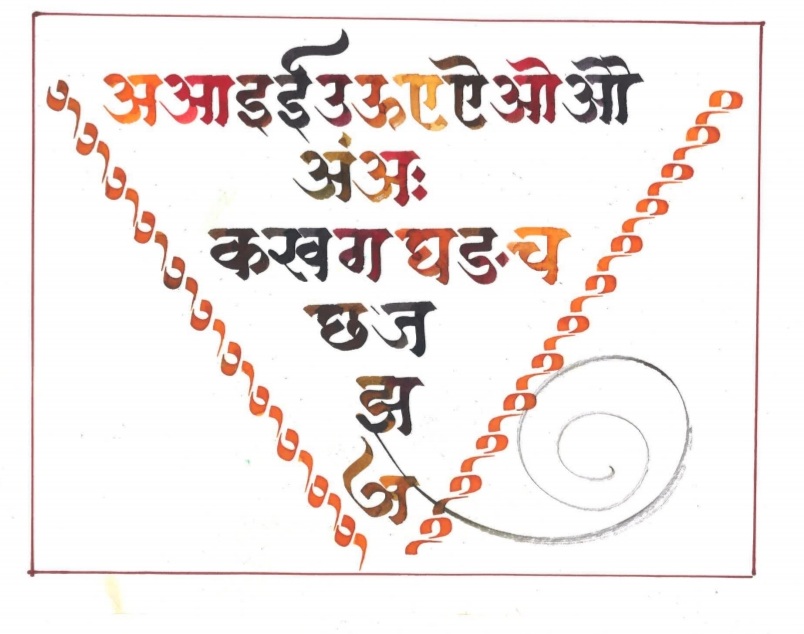 अआइईउऊएऐओऔ
अंअः
कखगघङच
छज
झ
ञ